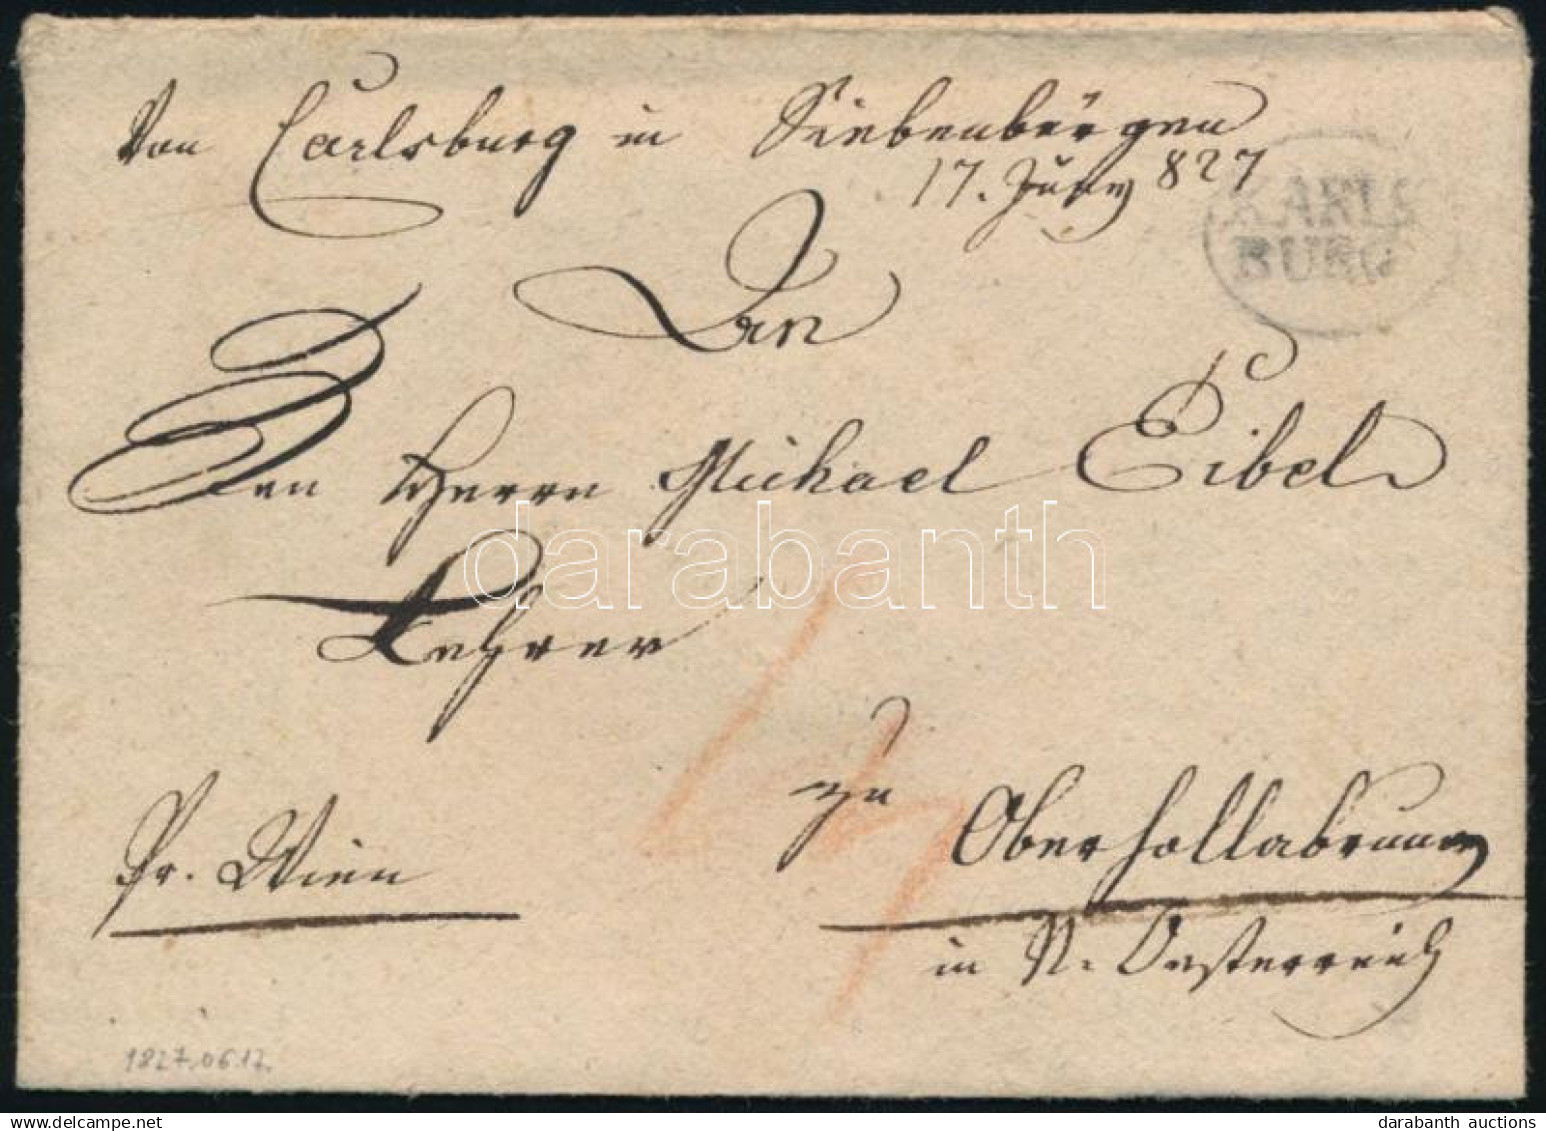 Von Carlsburg in Siebenbürgen
17. Juny 827
KARLS
BURG
An
Den Herrn Michael Eibel
Lehrer
zu
Pr. Wien
Oberhollabrunn
in N. Oesterreich
1827.06.17.
darabanth
darabanth auctions